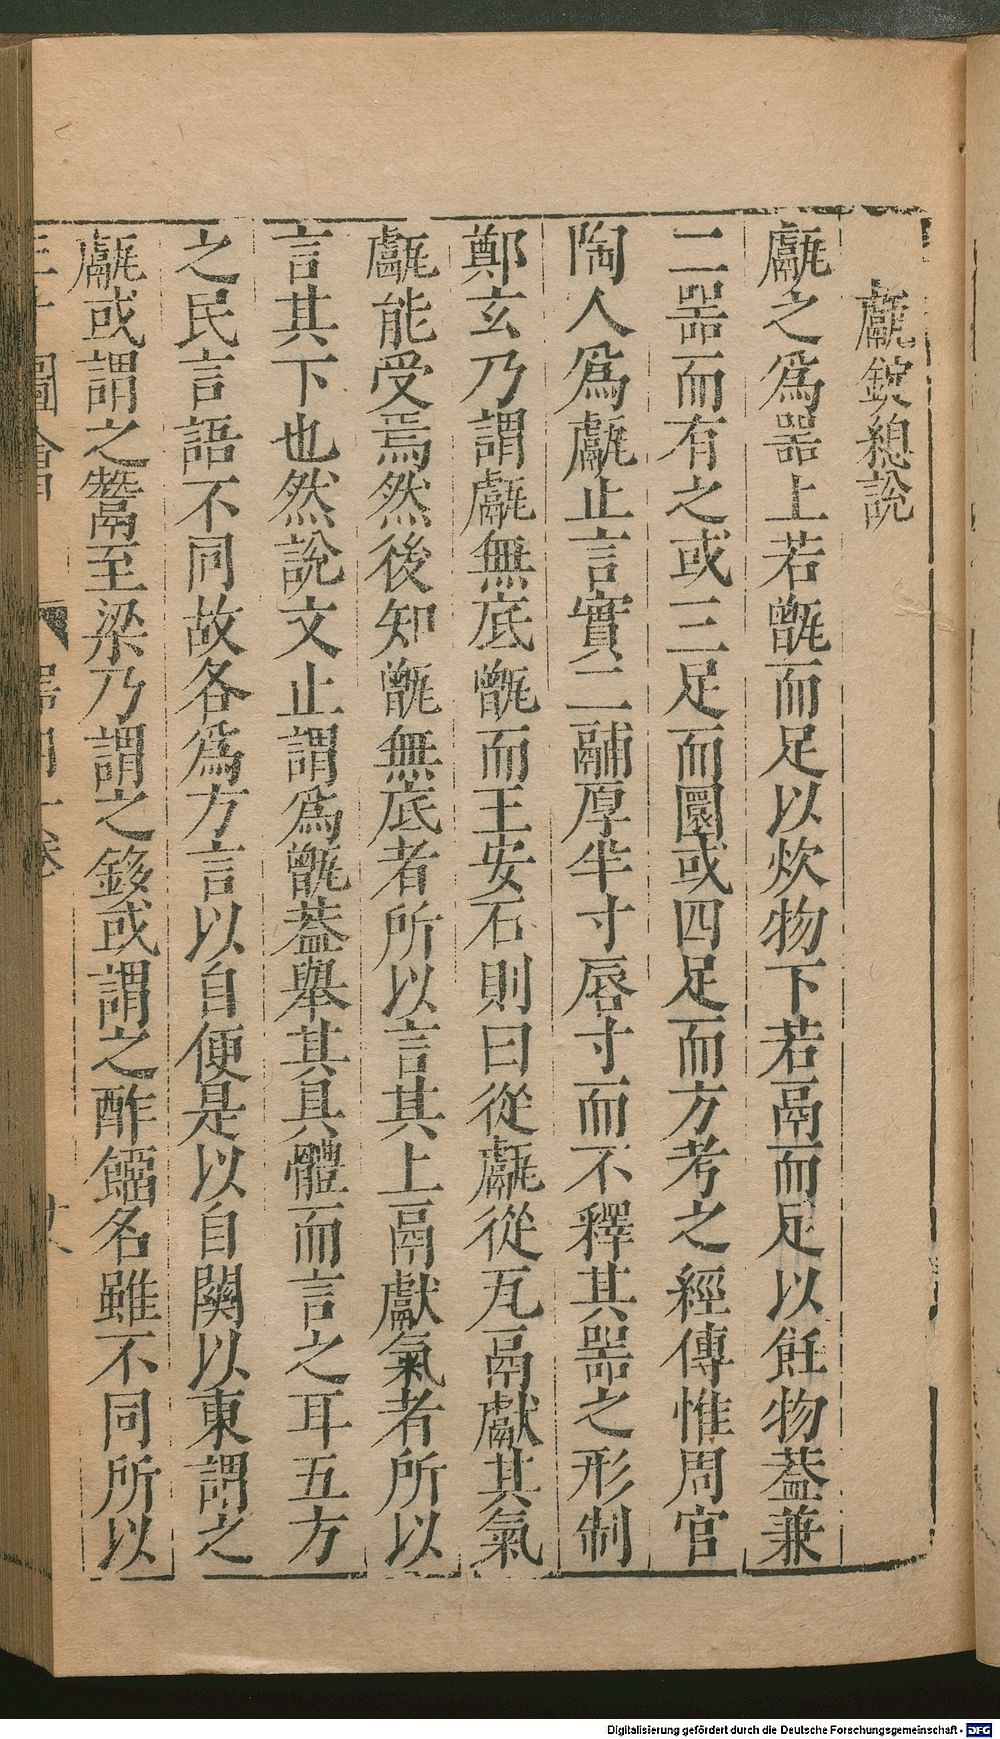 甗錠總說
甗之爲器上若甑而足以炊物下若鬲而足以飪物蓋兼
二器而有之或三足而圜或四足而方考之經傳惟周官
陶人爲甗止言實二鬴厚半寸唇寸而不釋其器之形制
鄭玄乃謂甗無底甑而王安石則曰從甗從瓦鬲獻其氣
甗能受焉然後知甑無底者所以言其上鬲獻氣者所以
言其下也然說文止謂爲甑蓋舉其具體而言之耳五方
之民言語不同故各爲方言以自便是以自關以東謂之
甗或謂之鬵至梁乃謂之鉹或謂之酢餾名雖不同所以
圖會
Digitalisierung gefördert durch die Deutsche Forschungsgemeinschaft - DFG